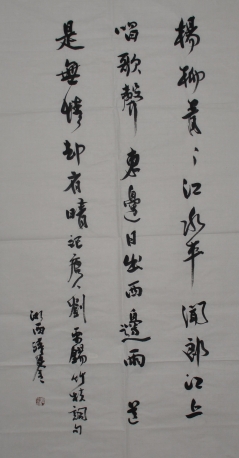 楊柳青〻江水平聞郎江上
唱歌聲東邊日出西邊雨道
是無情却有晴記唐人劉禹錫竹枝詞句
湘西